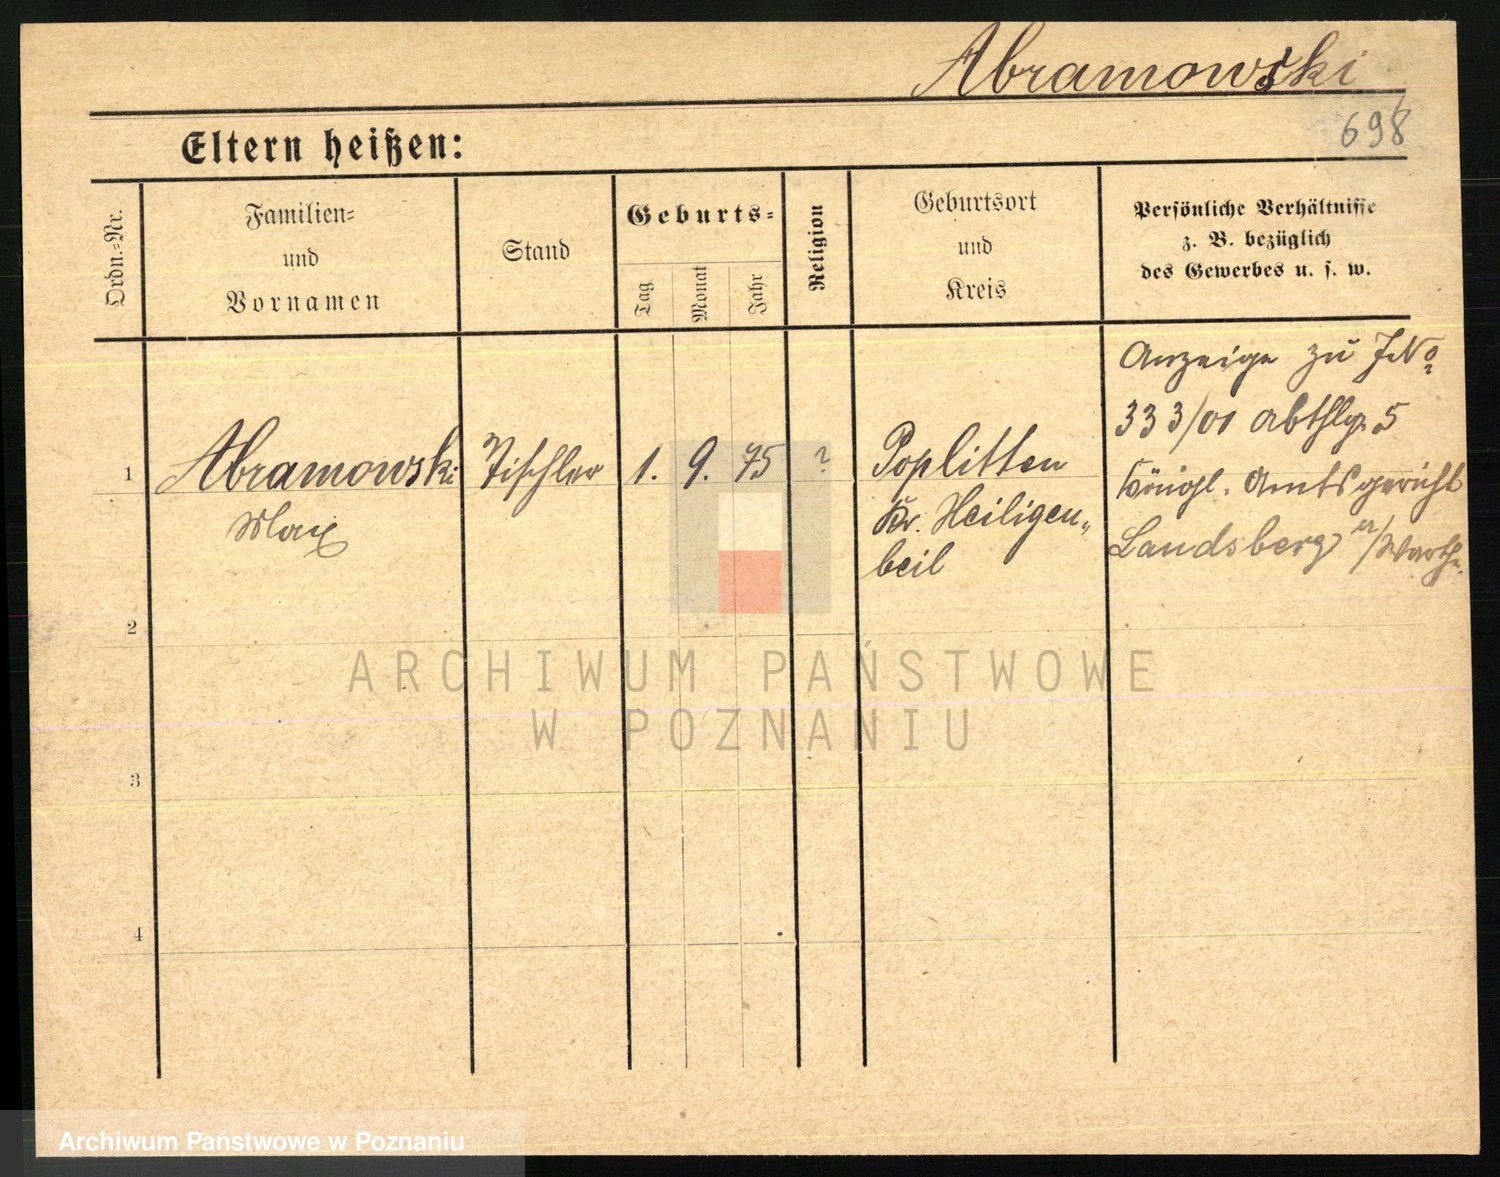 Abramowski
698
Eltern heißen:
Ordn.-Nr.
Familien-
und
Vornamen
Stand
Geburts-
Tag
Monat
Jahr
Religion
Geburtsort
und
Kreis
Persönliche Verhältnisse
z. B. bezüglich
des Gewerbes u. s. w.
1
Abramowski
Max
Tischler
1. 9. 75
?
Poplitten
Kr. Heiligen-
beil
Anzeige zu JNo
333/01 Abthlg. 5
Königl. Amtsgericht
Landsberg a/Warthe.
2
3
4
ARCHIWUM PAŃSTWOWE
W POZNANIU
Archiwum Państwowe w Poznaniu